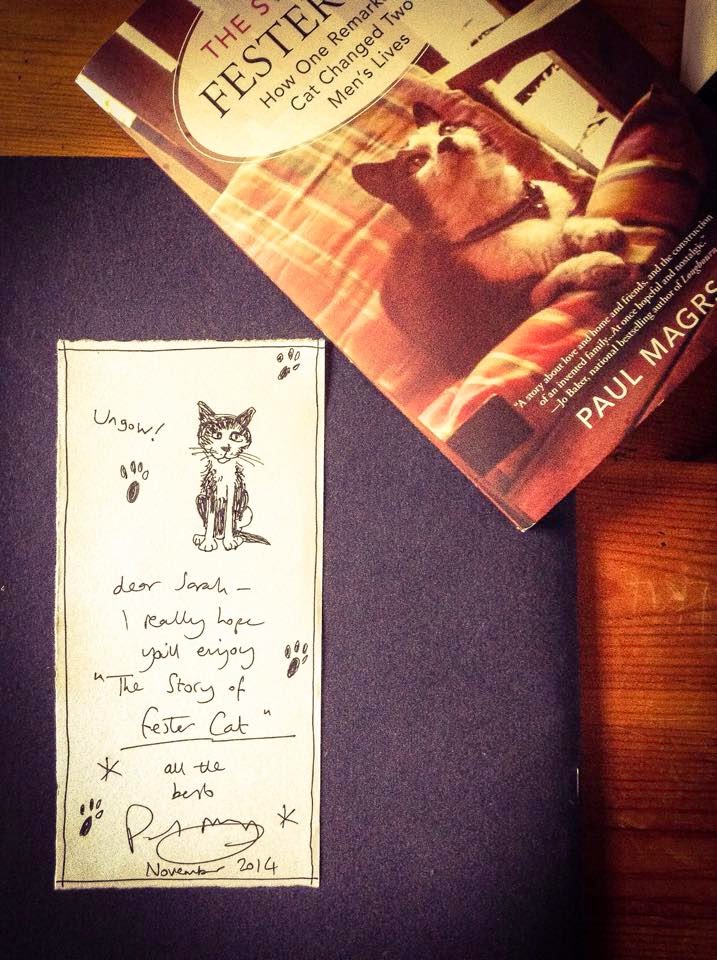 THE S
FESTER
How One Remark
Cat Changed Two
Men's Lives
"A story about love and home and friends, and the construction
of an invented family...At once hopeful and nostalgic."
—Jo Baker, national bestselling author of Longbourn
PAUL MAGRS
Ungow!
dear Sarah —
I really hope
you'll enjoy
"The Story of
Fester Cat"
all the
best
November 2014